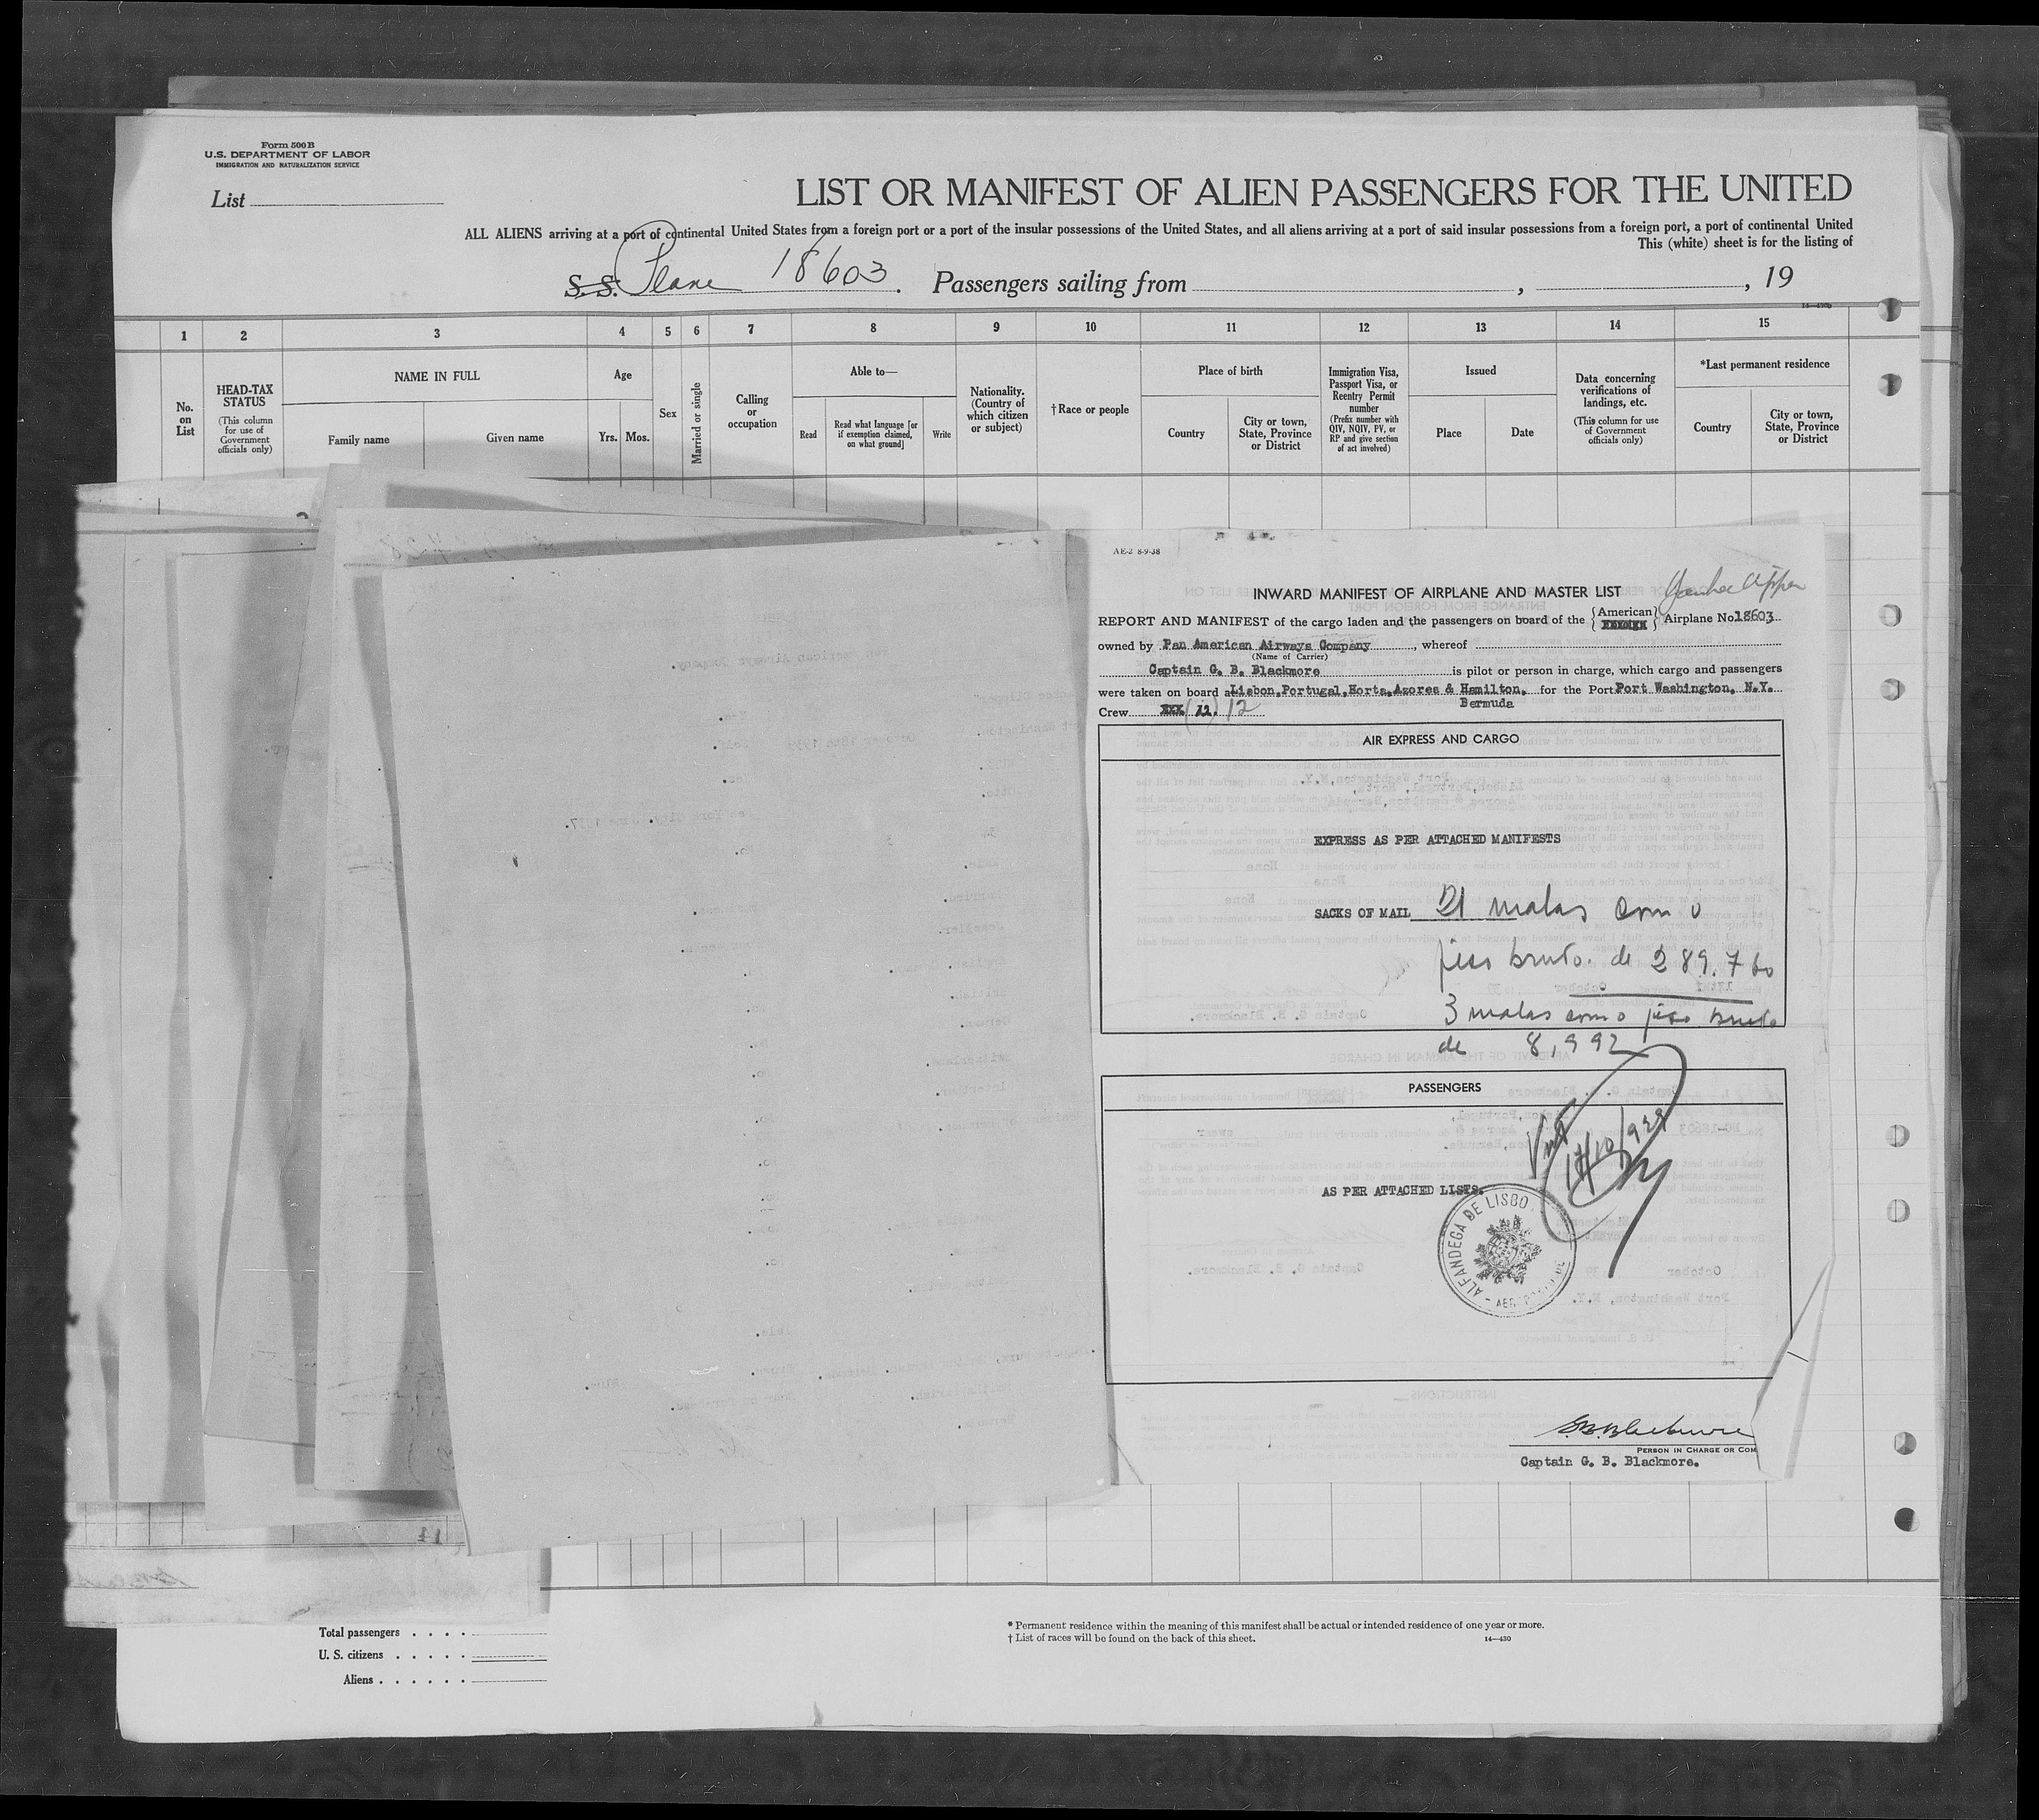 Form 500 B
U.S. DEPARTMENT OF LABOR
IMMIGRATION AND NATURALIZATION SERVICE
List
LIST OR MANIFEST OF ALIEN PASSENGERS FOR THE UNITED
ALL ALIENS arriving at a port of continental United States from a foreign port or a port of the insular possessions of the United States, and all aliens arriving at a port of said insular possessions from a foreign port, a port of continental United
This (white) sheet is for the listing of
S.S. Plane 18603. Passengers sailing from , , 19
1 2 3 4 5 6 7 8 9 10 11 12 13 14 15
No. on List
HEAD-TAX STATUS
(This column for use of Government officials only)
NAME IN FULL
Family name
Given name
Age
Yrs. Mos.
Sex
Married or single
Calling or occupation
Able to—
Read
Read what language [or if exemption claimed, on what ground]
Write
Nationality. (Country of which citizen or subject)
†Race or people
Place of birth
Country
City or town, State, Province or District
Immigration Visa, Passport Visa, or Reentry Permit number
(Prefix number with QIV, NQIV, PV, or RP and give section of act involved)
Issued
Place
Date
Data concerning verifications of landings, etc.
(This column for use of Government officials only)
*Last permanent residence
Country
City or town, State, Province or District
AE-2 8-9-38
INWARD MANIFEST OF AIRPLANE AND MASTER LIST
REPORT AND MANIFEST of the cargo laden and the passengers on board of the {American} Airplane No. 18603
owned by Pan American Airways Company , whereof
(Name of Carrier)
Captain G. B. Blackmore is pilot or person in charge, which cargo and passengers
were taken on board at Lisbon, Portugal, Horta, Azores & Hamilton, for the Port Port Washington, N.Y.
Bermuda
Crew XXX (12. 12
AIR EXPRESS AND CARGO
EXPRESS AS PER ATTACHED MANIFESTS
SACKS OF MAIL 21 malas com o
peso bruto. de 289.760
3 malas com o peso bruto
de 8,992
PASSENGERS
AS PER ATTACHED LISTS.
ALFANDEGA DE LISBO
Captain G. B. Blackmore.
PERSON IN CHARGE OR COM
G.B. Blackmore
Total passengers . . . .
U. S. citizens . . . . .
Aliens . . . . . .
* Permanent residence within the meaning of this manifest shall be actual or intended residence of one year or more.
† List of races will be found on the back of this sheet.
14—430